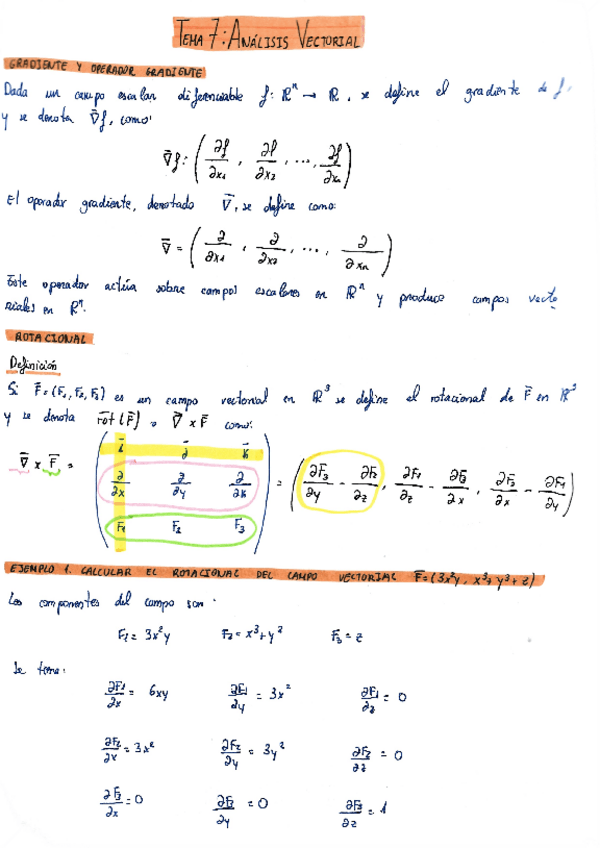 TEMA 7: ANÁLISIS VECTORIAL
GRADIENTE Y OPERADOR GRADIENTE
Dado un campo escalar diferenciable f: ℝⁿ → ℝ, se define el gradiente de f,
y se denota ∇f, como:
∇f: (∂f/∂x₁, ∂f/∂x₂, ..., ∂f/∂xₙ)
El operador gradiente, denotado ∇, se define como:
∇ = (∂/∂x₁, ∂/∂x₂, ..., ∂/∂xₙ)
Este operador actúa sobre campos escalares en ℝⁿ y produce campos vecto
riales en ℝⁿ.
ROTACIONAL
Definición
Si F̄ = (F₁, F₂, F₃) es un campo vectorial en ℝ³ se define el rotacional de F̄ en ℝ³
y se denota rot(F̄) o ∇ x F̄ como:
∇ x F̄ = (i j k; ∂/∂x ∂/∂y ∂/∂k; F₁ F₂ F₃) = (∂F₃/∂y - ∂F₂/∂z, ∂F₁/∂z - ∂F₃/∂x, ∂F₂/∂x - ∂F₁/∂y)
EJEMPLO 1. CALCULAR EL ROTACIONAL DEL CAMPO VECTORIAL F̄ = (3x²y, x³+y³+z)
Las componentes del campo son
F₁ = 3x²y F₂ = x³+y³ F₃ = z
Se tiene:
∂F₁/∂x = 6xy ∂F₁/∂y = 3x² ∂F₁/∂z = 0
∂F₂/∂x = 3x² ∂F₂/∂y = 3y² ∂F₂/∂z = 0
∂F₃/∂x = 0 ∂F₃/∂y = 0 ∂F₃/∂z = 1